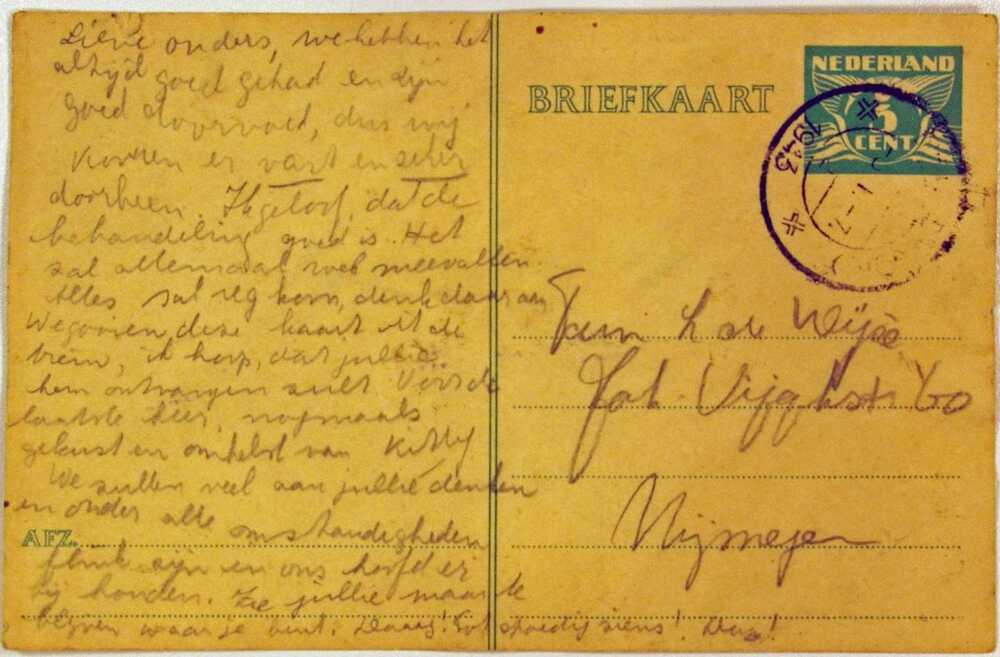 Lieve ouders, we hebben het
altijd goed gehad en zijn
goed doorvoed, dus wij
komen er vast en zeker
doorheen. Ik geloof, dat de
behandeling goed is. Het
zal allemaal wel meevallen.
Alles sal reg kom, denk daar aan
We gooien deze kaart uit de
trein, ik hoop, dat jullie
hem ontvangen zult. Voor de
laatste keer, nogmaals
gekust en omhelst van Kitty
We zullen veel aan jullie denken
en onder alle omstandigheden
flink zijn en ons hoofd er
bij houden. Zie jullie maar te
blijven waar je bent. Daag! Tot spoedig ziens! Daag!
AFZ.
BRIEFKAART
NEDERLAND
5
CENT
1943
Fam L de Wijze
Joh. Vijghstr 60
Nijmegen